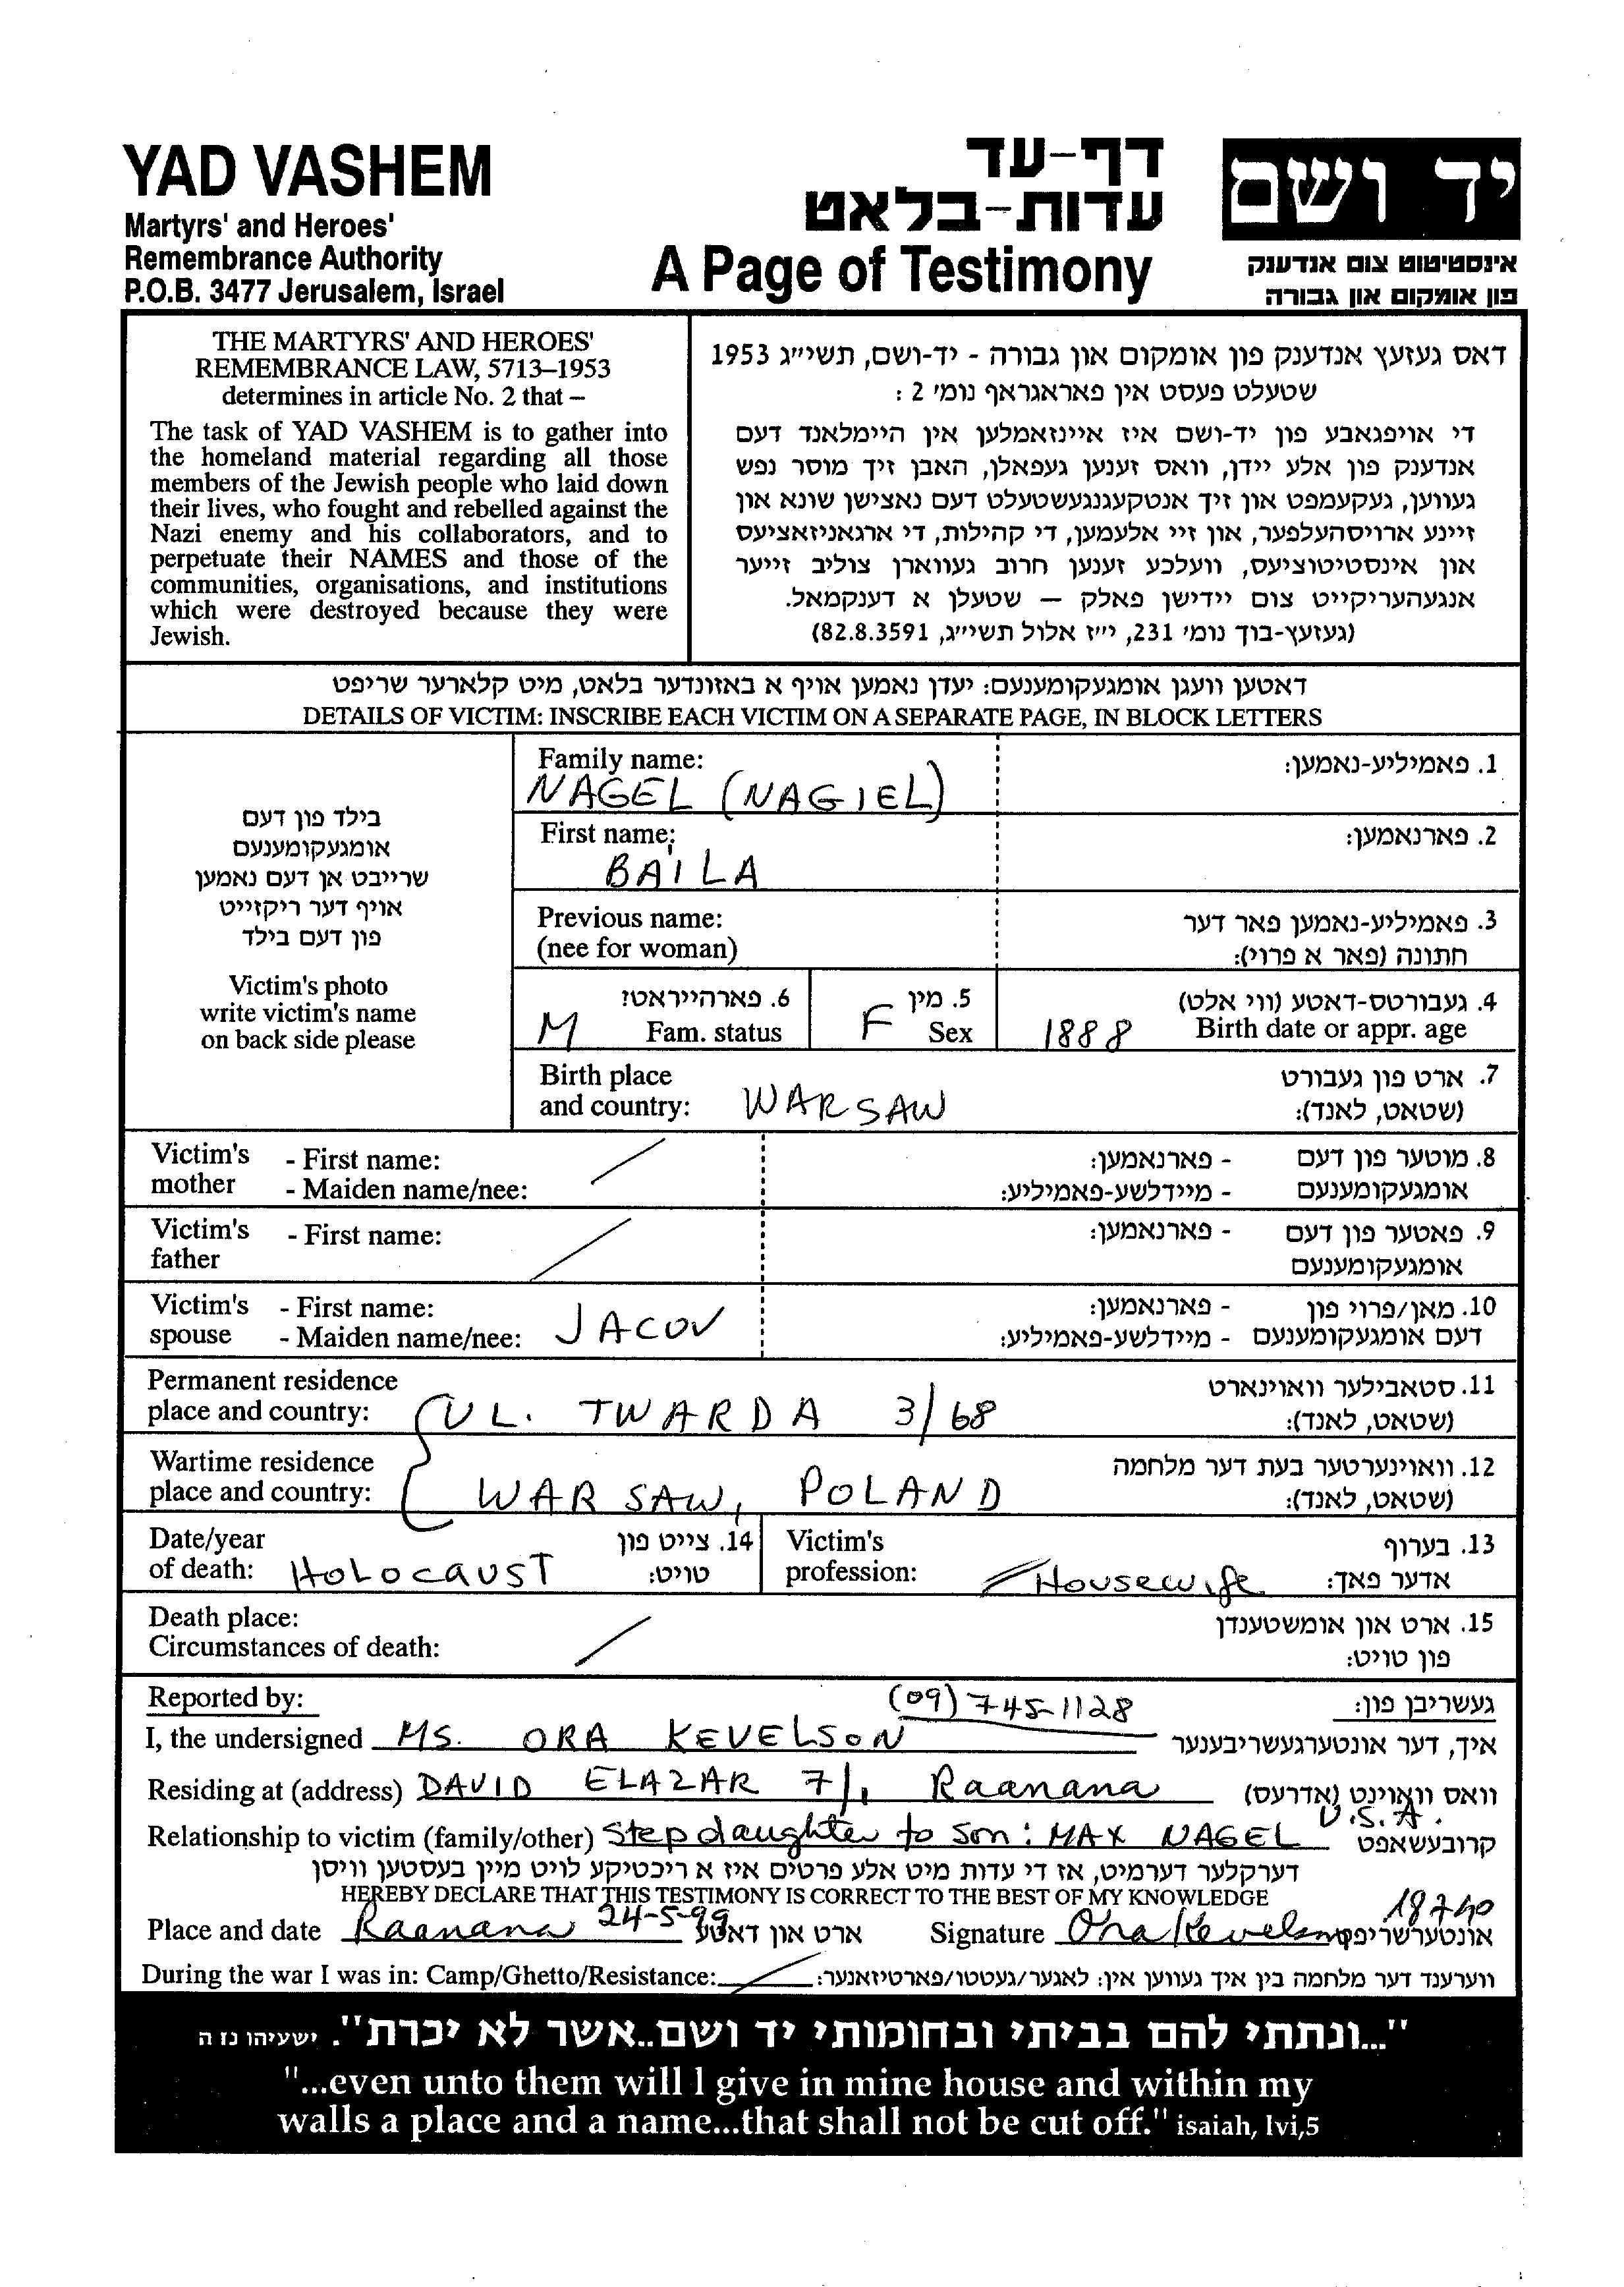 YAD VASHEM
Martyrs' and Heroes'
Remembrance Authority
P.O.B. 3477 Jerusalem, Israel
דף-עד
עדות-בלאט
A Page of Testimony
יד ושם
אינסטיטוט צום אנדענק
פון אומקום און גבורה
THE MARTYRS' AND HEROES'
REMEMBRANCE LAW, 5713–1953
determines in article No. 2 that –
The task of YAD VASHEM is to gather into
the homeland material regarding all those
members of the Jewish people who laid down
their lives, who fought and rebelled against the
Nazi enemy and his collaborators, and to
perpetuate their NAMES and those of the
communities, organisations, and institutions
which were destroyed because they were
Jewish.
דאס געזעץ אנדענק פון אומקום און גבורה - יד-ושם, תשי״ג 1953
שטעלט פעסט אין פאראגראף נומ׳ 2 :
די אויפגאבע פון יד-ושם איז איינזאמלען אין היימלאנד דעם
אנדענק פון אלע יידן, וואס זענען געפאלן, האבן זיך מוסר נפש
געווען, געקעמפט און זיך אנטקעגנגעשטעלט דעם נאצישן שונא און
זיינע ארויסהעלפער, און זיי אלעמען, די קהילות, די ארגאניזאציעס
און אינסטיטוציעס, וועלכע זענען חרוב געווארן צוליב זייער
אנגעהעריקייט צום יידישן פאלק — שטעלן א דענקמאל.
(געזעץ-בוך נומ׳ 231, י״ז אלול תשי״ג, 82.8.3591)
דאטען וועגן אומגעקומענעם: יעדן נאמען אויף א באזונדער בלאט, מיט קלארער שריפט
DETAILS OF VICTIM: INSCRIBE EACH VICTIM ON A SEPARATE PAGE, IN BLOCK LETTERS
בילד פון דעם
אומגעקומענעם
שרייבט אן דעם נאמען
אויף דער ריקזייט
פון דעם בילד
Victim's photo
write victim's name
on back side please
Family name: 1. פאמיליע-נאמען:
NAGEL (NAGIEL)
First name: 2. פארנאמען:
BAILA
Previous name: 3. פאמיליע-נאמען פאר דער
(nee for woman) חתונה (פאר א פרוי):
6. פארהייראט? 5. מין 4. געבורטס-דאטע (ווי אלט)
M Fam. status F Sex 1888 Birth date or appr. age
Birth place 7. ארט פון געבורט
and country: WARSAW (שטאט, לאנד):
Victim's - First name: - פארנאמען: 8. מוטער פון דעם
mother - Maiden name/nee: - מיידלשע-פאמיליע: אומגעקומענעם
Victim's - First name: - פארנאמען: 9. פאטער פון דעם
father אומגעקומענעם
Victim's - First name: - פארנאמען: 10. מאן/פרוי פון
spouse - Maiden name/nee: JACOV - מיידלשע-פאמיליע: דעם אומגעקומענעם
Permanent residence 11. סטאבילער וואוינארט
place and country: UL. TWARDA 3/68 (שטאט, לאנד):
Wartime residence 12. וואוינערטער בעת דער מלחמה
place and country: WARSAW, POLAND (שטאט, לאנד):
Date/year 14. צייט פון Victim's 13. בערוף
of death: HOLOCAUST טויט: profession: Housewife אדער פאך:
Death place: 15. ארט און אומשטענדן
Circumstances of death: פון טויט:
Reported by: (09) 745-1128 געשריבן פון:
I, the undersigned MS. ORA KEVELSON איך, דער אונטערגעשריבענער
Residing at (address) DAVID ELAZAR 7/1 Raanana וואס וואוינט (אדרעס)
U.S.A.
Relationship to victim (family/other) Stepdaughter to son: MAX NAGEL קרובעשאפט
דערקלער דערמיט, אז די עדות מיט אלע פרטים איז א ריכטיקע לויט מיין בעסטען וויסן
HEREBY DECLARE THAT THIS TESTIMONY IS CORRECT TO THE BEST OF MY KNOWLEDGE
18740
Place and date Raanana 24-5-99 ארט און דאטע Signature Ora Kevelson אונטערשריפט
During the war I was in: Camp/Ghetto/Resistance: ווערענד דער מלחמה בין איך געווען אין: לאגער/געטטו/פארטיזאנער:
"...ונתתי להם בביתי ובחומותי יד ושם..אשר לא יכרת". ישעיהו נז ה
"...even unto them will I give in mine house and within my
walls a place and a name...that shall not be cut off." isaiah, lvi,5